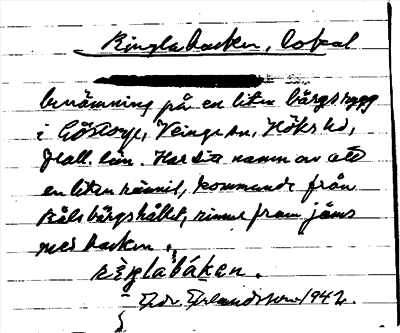 Ringlabacken, lokal
benämning på en liten bärgsrygg
i Göstorp, Veinge sn, Höks hd,
Hall. län. Har sitt namn av att
en liten rännil, kommande från
bärgshållet, rinner fram jäms
med backen.
rèŋlabáken.
Erlandsson 1942.